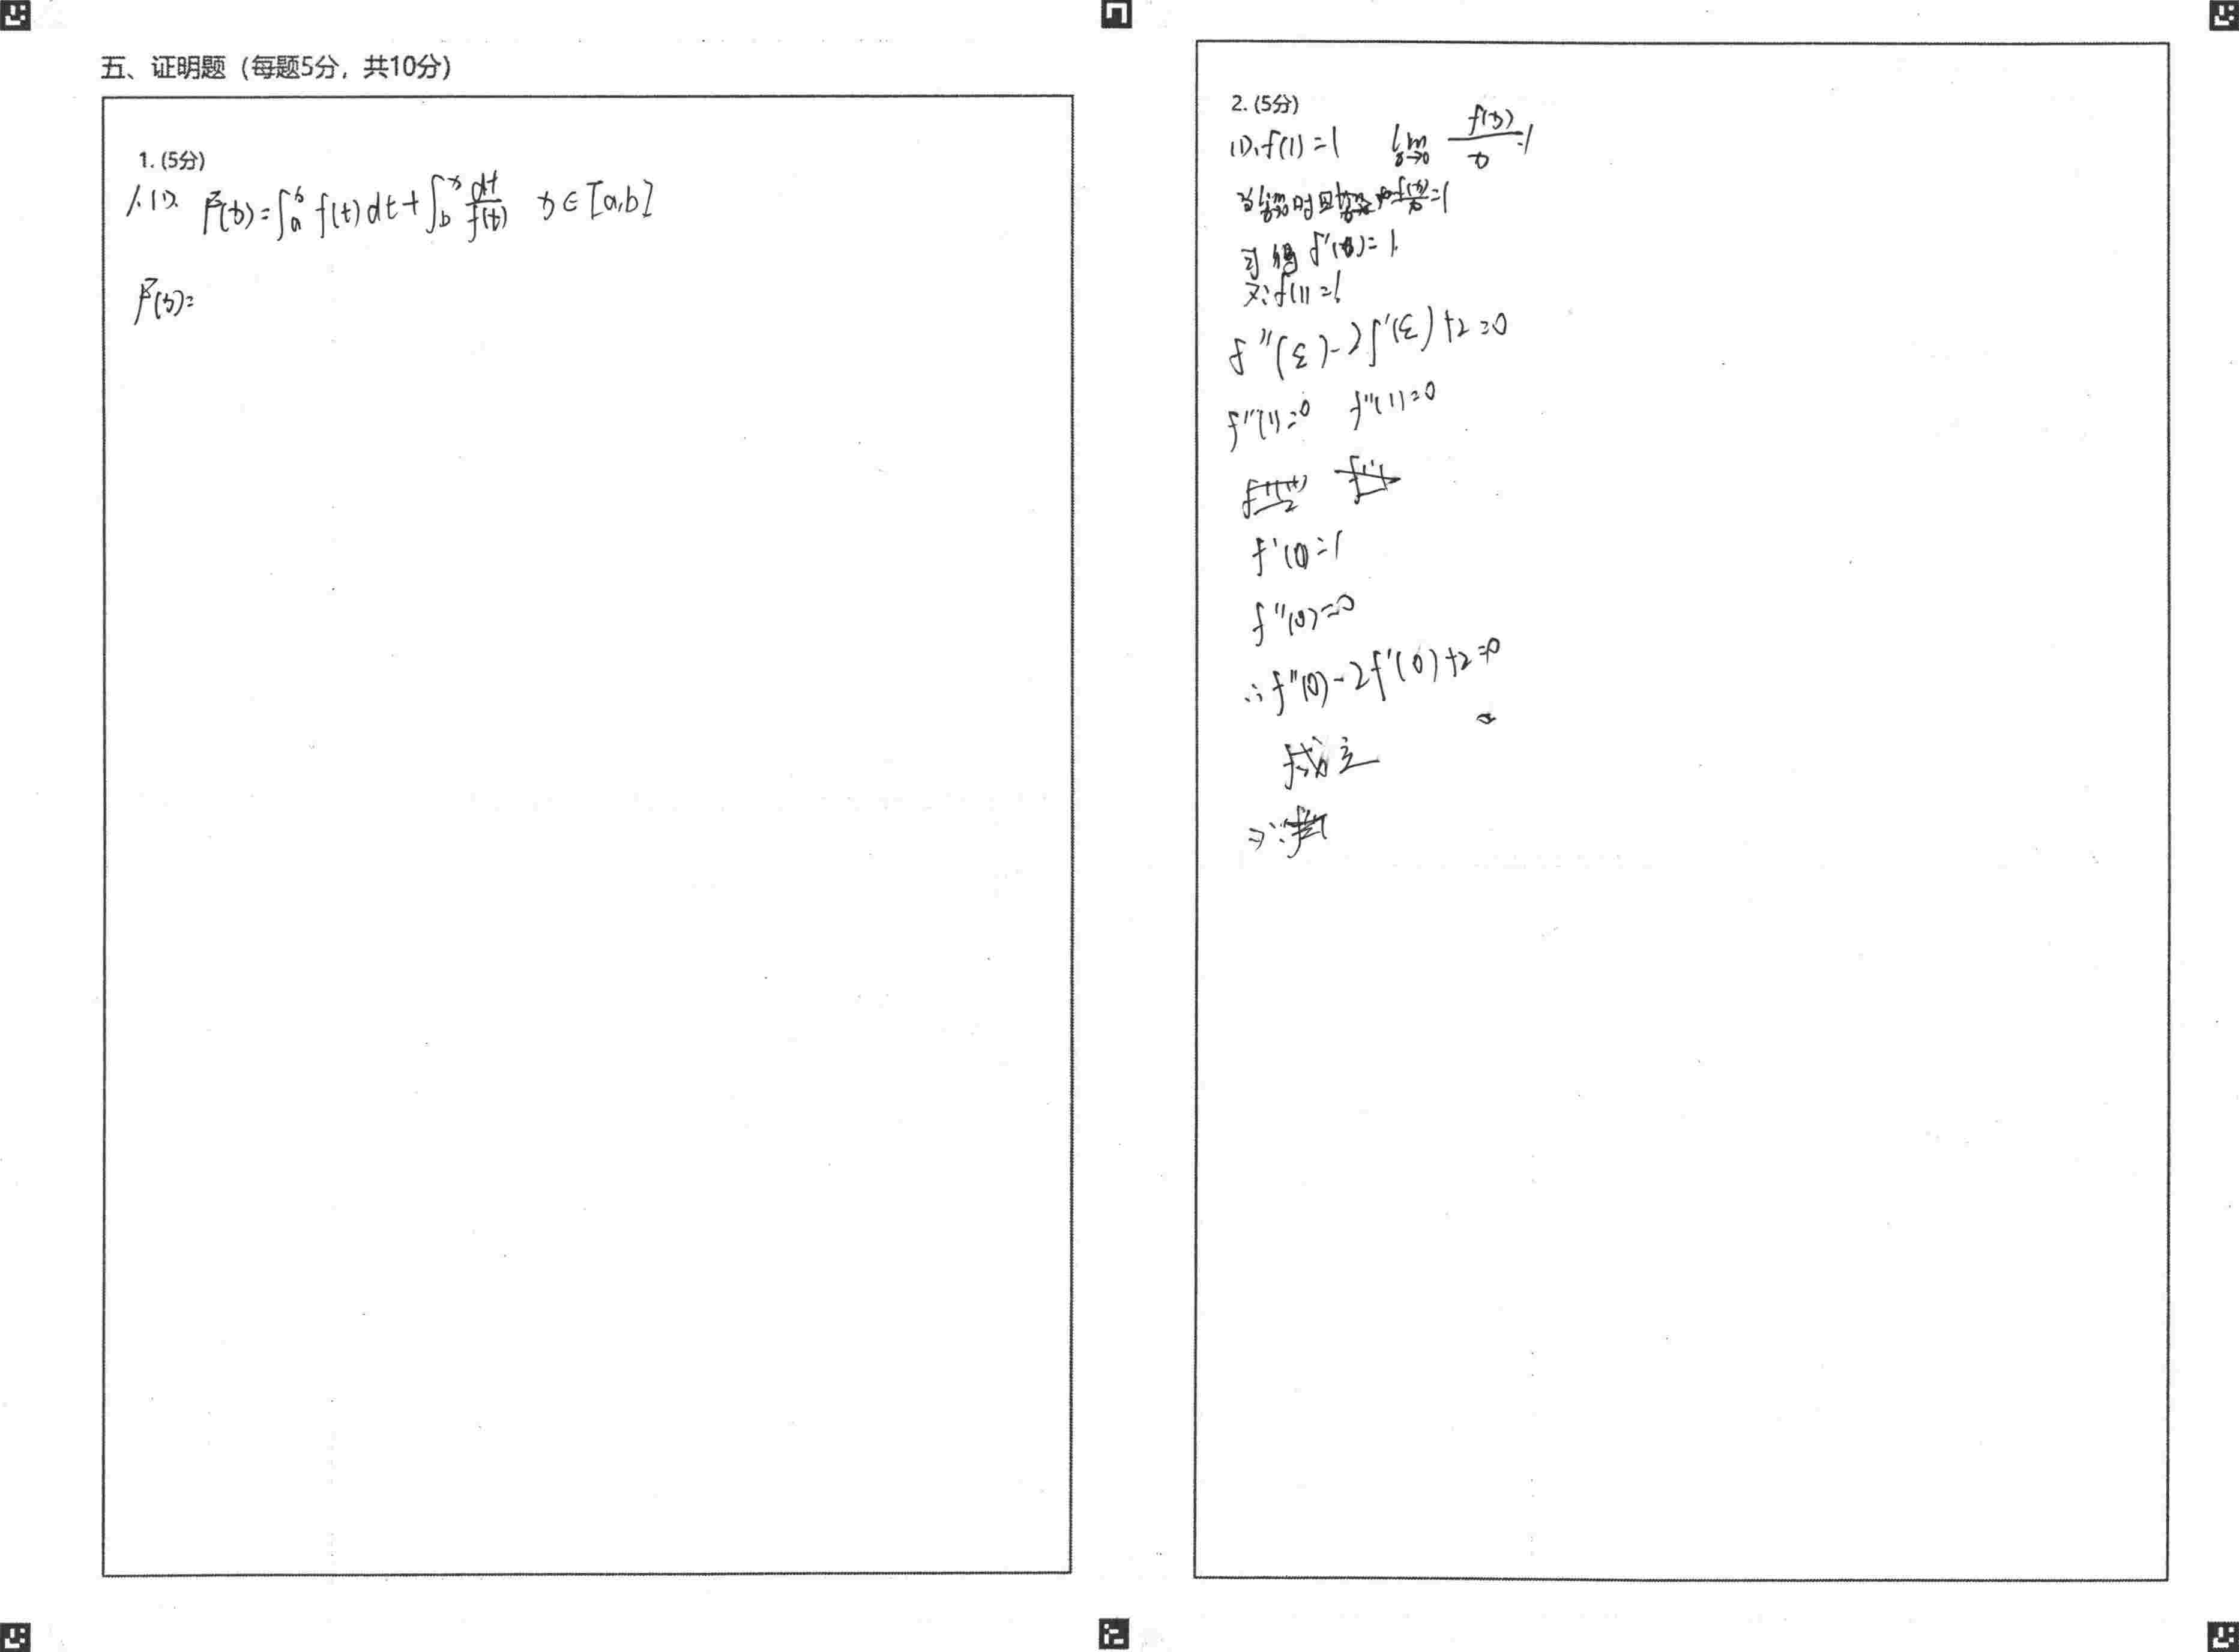 五、证明题（每题5分，共10分）
1. (5分)
1.(1). F(x)=∫_a^x f(t)dt+∫_b^x dt/f(t) x∈[a,b]
F(x)=
2. (5分)
(1).f(1)=1 lim_{x→0} f(x)/x=1
可得 f'(0)=1.
又∵f(1)=1
f''(ξ)-2f'(ξ)+2=0
f''(1)=0 f''(1)=0
f'(0)=1
f''(0)=0
∴f''(0)-2f'(0)+2=0
成立